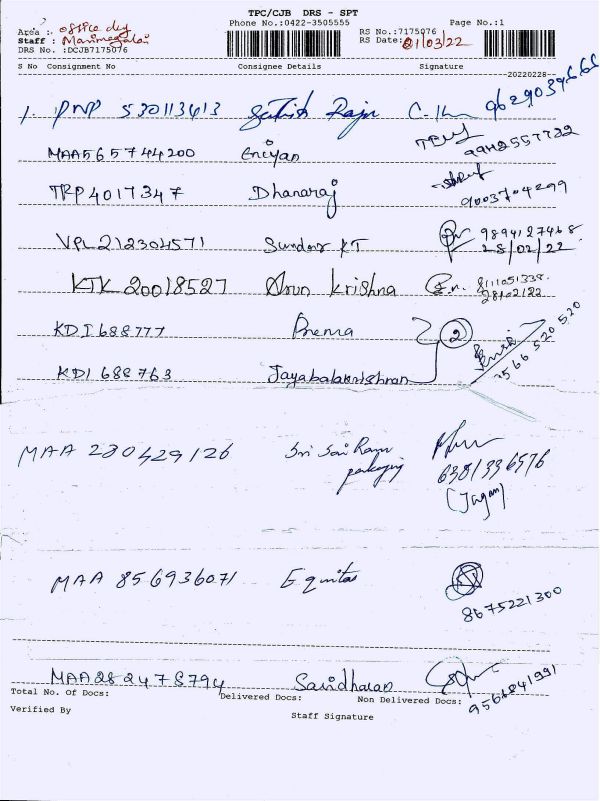 TPC/CJB DRS - SPT
Phone No.:0422-3505555 Page No.:1
Area : office dly
Staff : Manimegalai
DRS No.:DCJB7175076
RS No.:7175076
RS Date: 01/03/22
S No Consignment No Consignee Details Signature
20220228
1. PNP 530113613 Sathish Raja 9629039666
MAA565744200 Eniyan 9942557722
TRP4017347 Dhanaraj 9003704299
VPL212304571 Sundar KT 9894127468
28/02/22
KTK 20018527 Arun Krishna 8111051338
28/02/22
KDI688777 Prema 2
KDI 688763 Jayabalakrishnan 9566 520 520
MAA 230429126 Sri Sai Ram
packaging 6381336576
(Jagan)
MAA 856936071 Equitas
8675221300
MAA282478794 Savidharan
9566841991
Total No. Of Docs: Delivered Docs: Non Delivered Docs:
Verified By Staff Signature